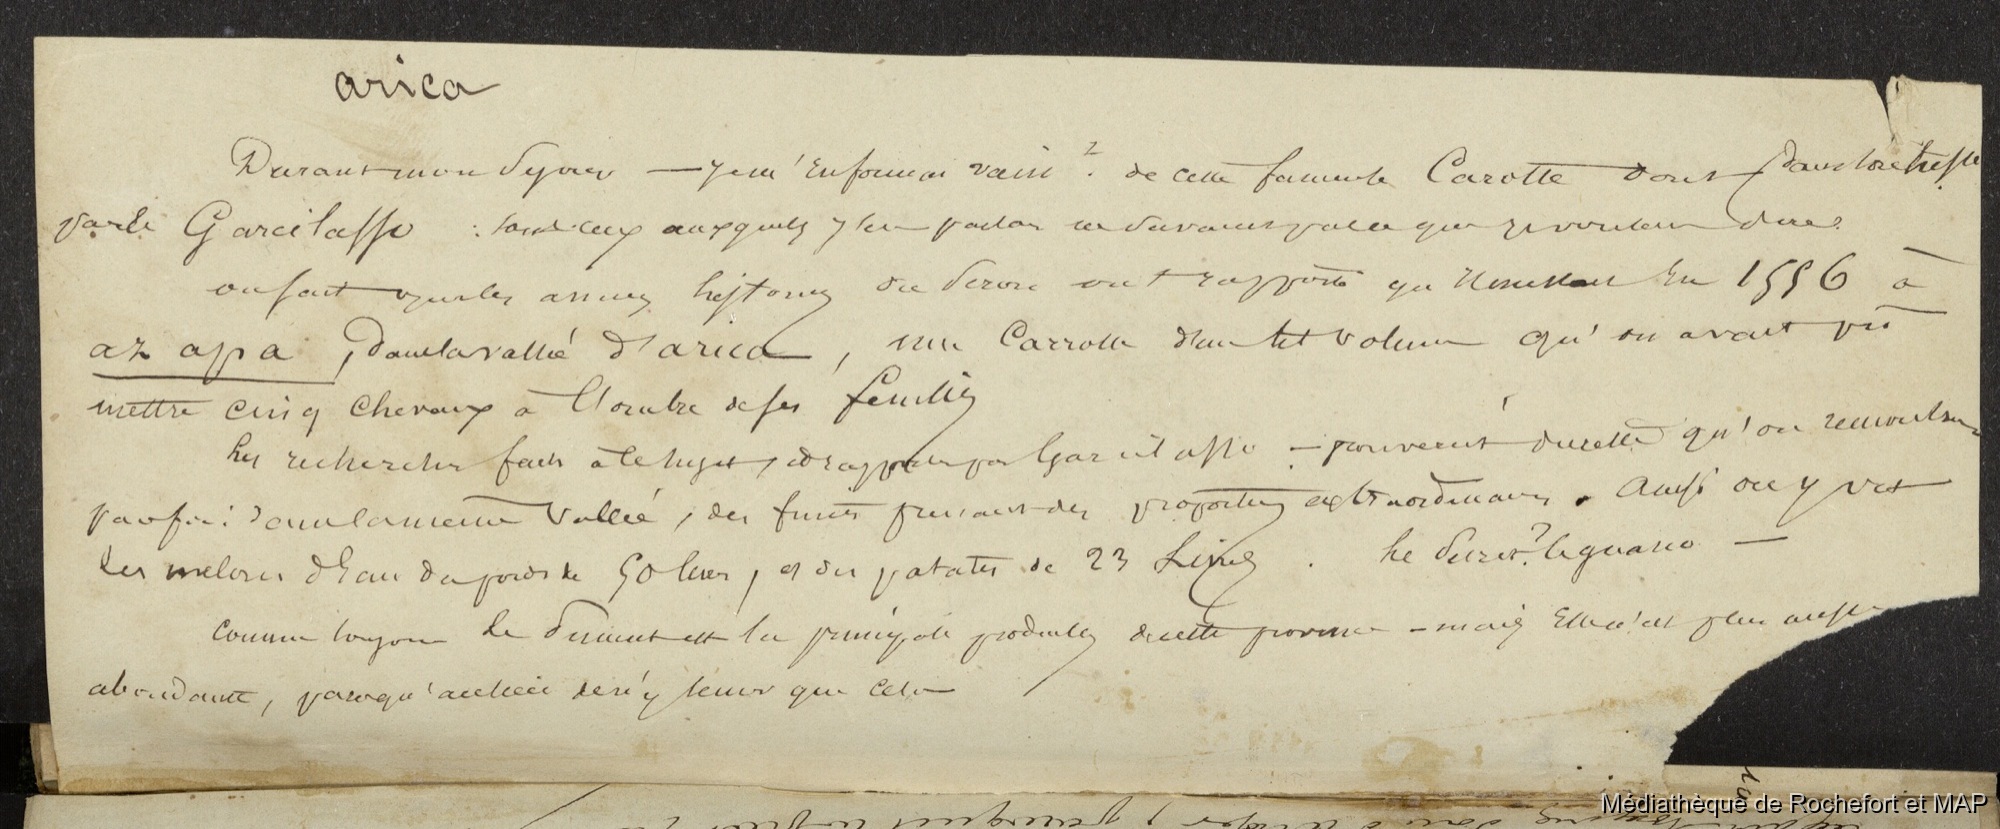 arica
Durant mon séjour — je m'informai vain^t. de cette fameuse Carotte dont dans son histre.
parle Garcilasso : tous ceux auxquels j'en parlai ne savaient pas ce que je voulais dire.
on sait que les annes histories du Perou ont rapporté qu'il en 1556 à
azapa, dans la vallée d'arica, une Carrotte d'un tel volume qu'on avait pu
mettre cinq chevaux à l'ombre de ses feuilles
les recherches faites à ce sujet, et rapportées par Garcilasso — prouverent du reste qu'on
parfois dans la meme vallée, des fruits prenant des proportions extraordinaires. Aussi on y vit
des melons d'Eau du poids de 50 livres, et des patates de 23 livres. le le guano —
comme toujours le piment est la principale production de cette province — mais Elle n'est plus aussi
abondante, parcequ'au lieu de n'y semer que cela
Médiathèque de Rochefort et MAP